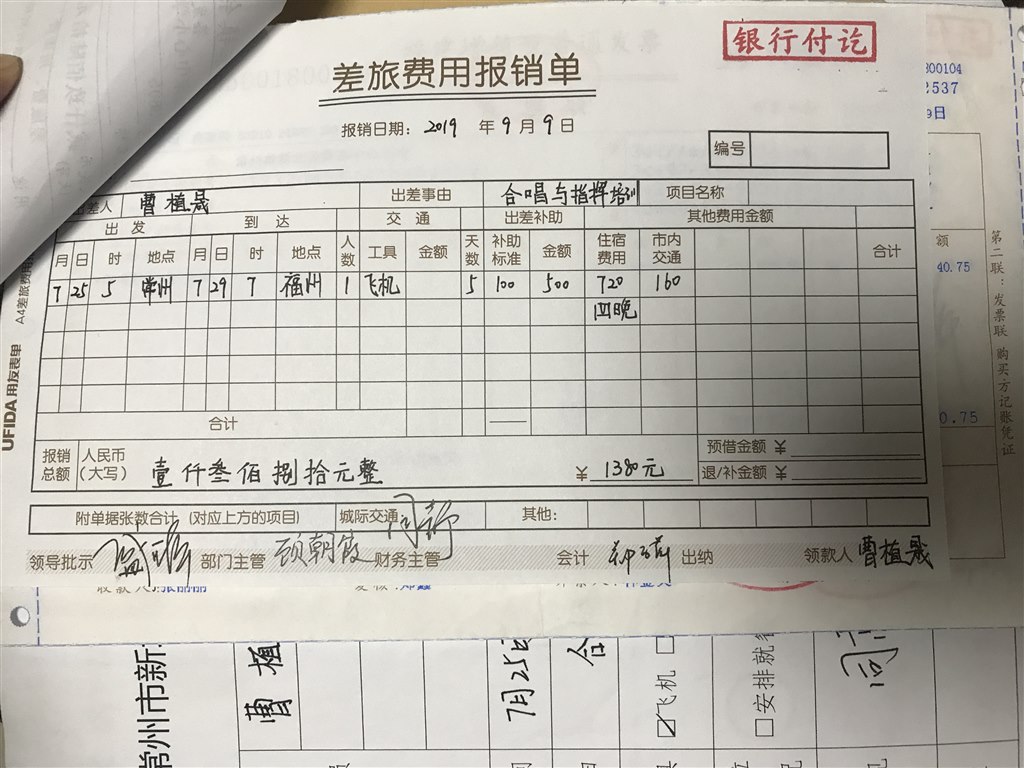 银行付讫
差旅费用报销单
报销日期： 2019 年 9 月 9 日
编号
出差人 曹植晟 出差事由 合唱与指挥培训 项目名称
出发 到达 交通 出差补助 其他费用金额
月 日 时 地点 月 日 时 地点 人数 工具 金额 天数 补助标准 金额 住宿费用 市内交通 合计
7 25 5 常州 7 29 7 福州 1 飞机 5 100 500 720 160
四晚
合计
报销总额 人民币（大写） 壹仟叁佰捌拾元整 ￥ 1380元
预借金额 ￥
退/补金额 ￥
附单据张数合计 （对应上方的项目） 城际交通： 其他：
领导批示 部门主管 顾朝霞 财务主管 会计 出纳 领款人 曹植晟
UFIDA 用友表单
A4差旅费用
第二联：发票联 购买方记账凭证
300104
2537
9日
额
40.75
0.75
常州市新
曹植
7月25日
合
飞机
安排就